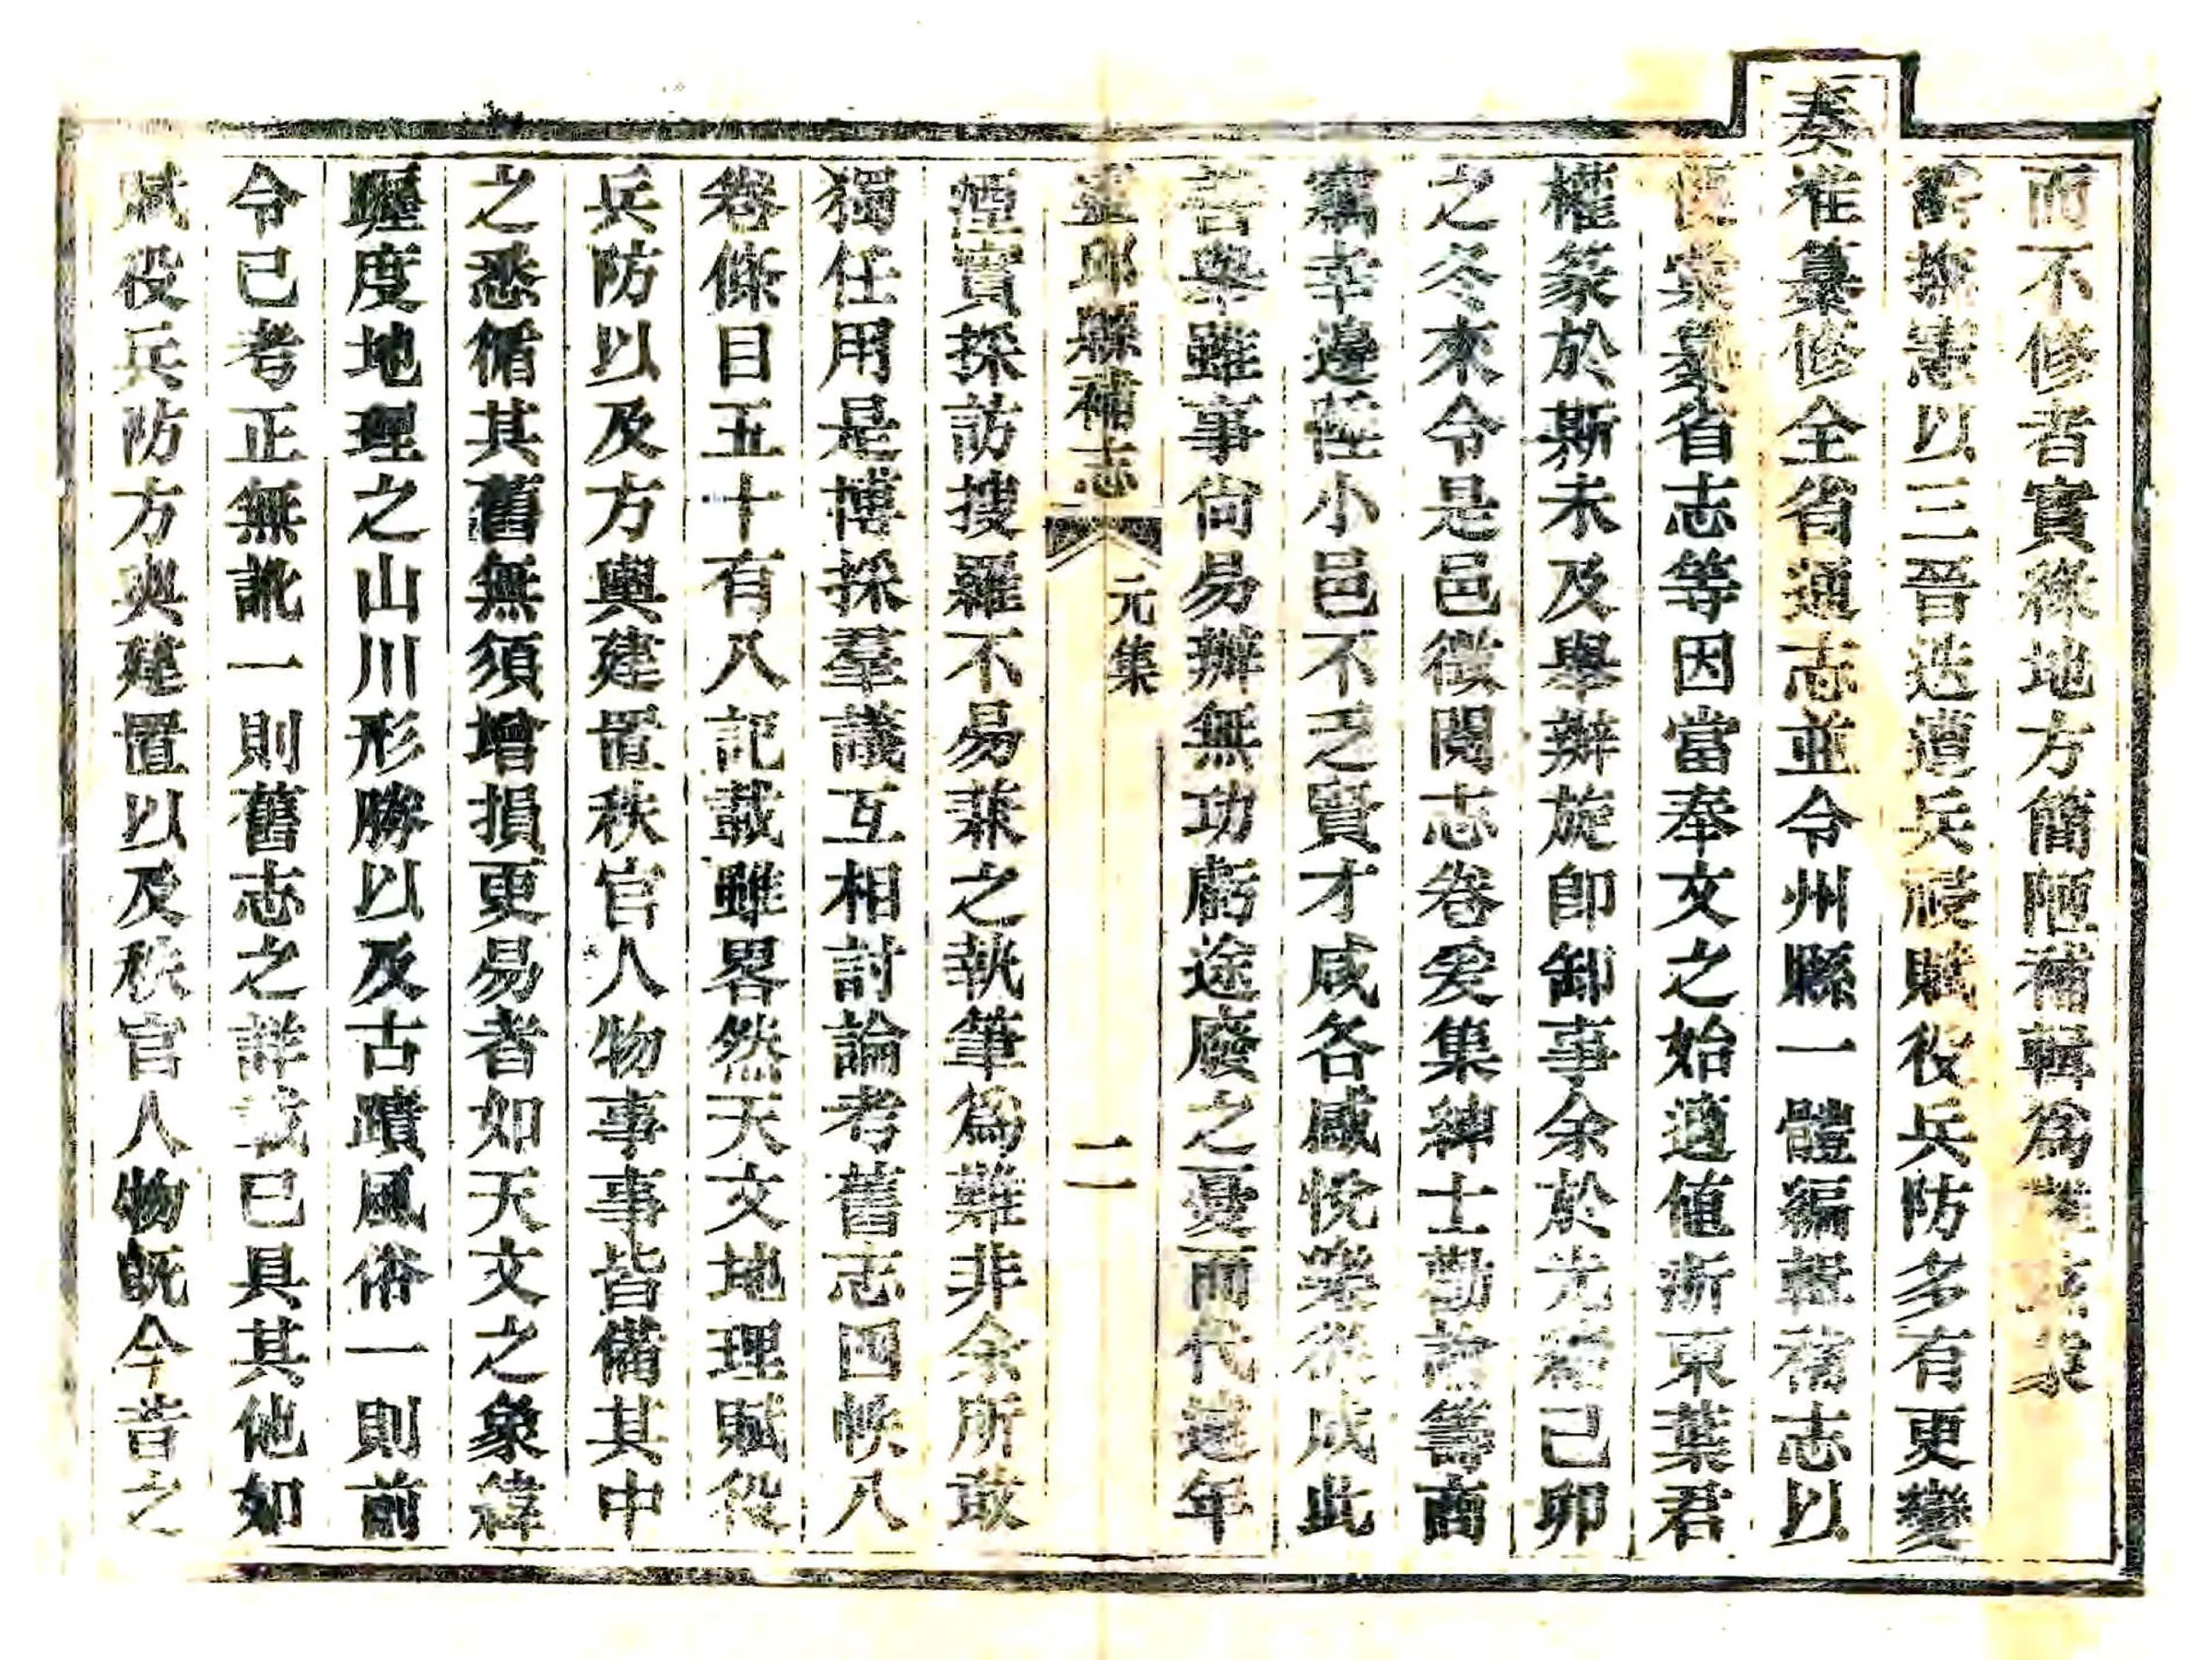 而不修者實緣地方簡陋補輯爲難
撫憲以三晉迭遭兵祲賦役兵防多有更變
奏准纂修全省通志並令州縣一體編輯舊志以
省志等因當奉文之始適值浙東葉君
權篆於斯未及舉辦旋卽卸事余於光緒己卯
之冬來令是邑徵閱志卷爰集紳士勤諮籌商
竊幸邊陲小邑不乏賢才咸各感悅樂從成此
善舉雖事尙易辦無功虧途廢之憂而代遠年
靈邱縣補志
元集
二
湮實採訪搜羅不易兼之執筆爲難非余所敢
獨任用是博採羣議互相討論考舊志四帙八
卷條目五十有八記載雖畧然天文地理賦役
兵防以及方輿建置秩官人物事事皆備其中
之悉循其舊無須增損更易者如天文之象緯
躔度地理之山川形勝以及古蹟風俗一則前
令已考正無訛一則舊志之詳載已具其他如
賦役兵防方輿建置以及秩官人物旣今昔之